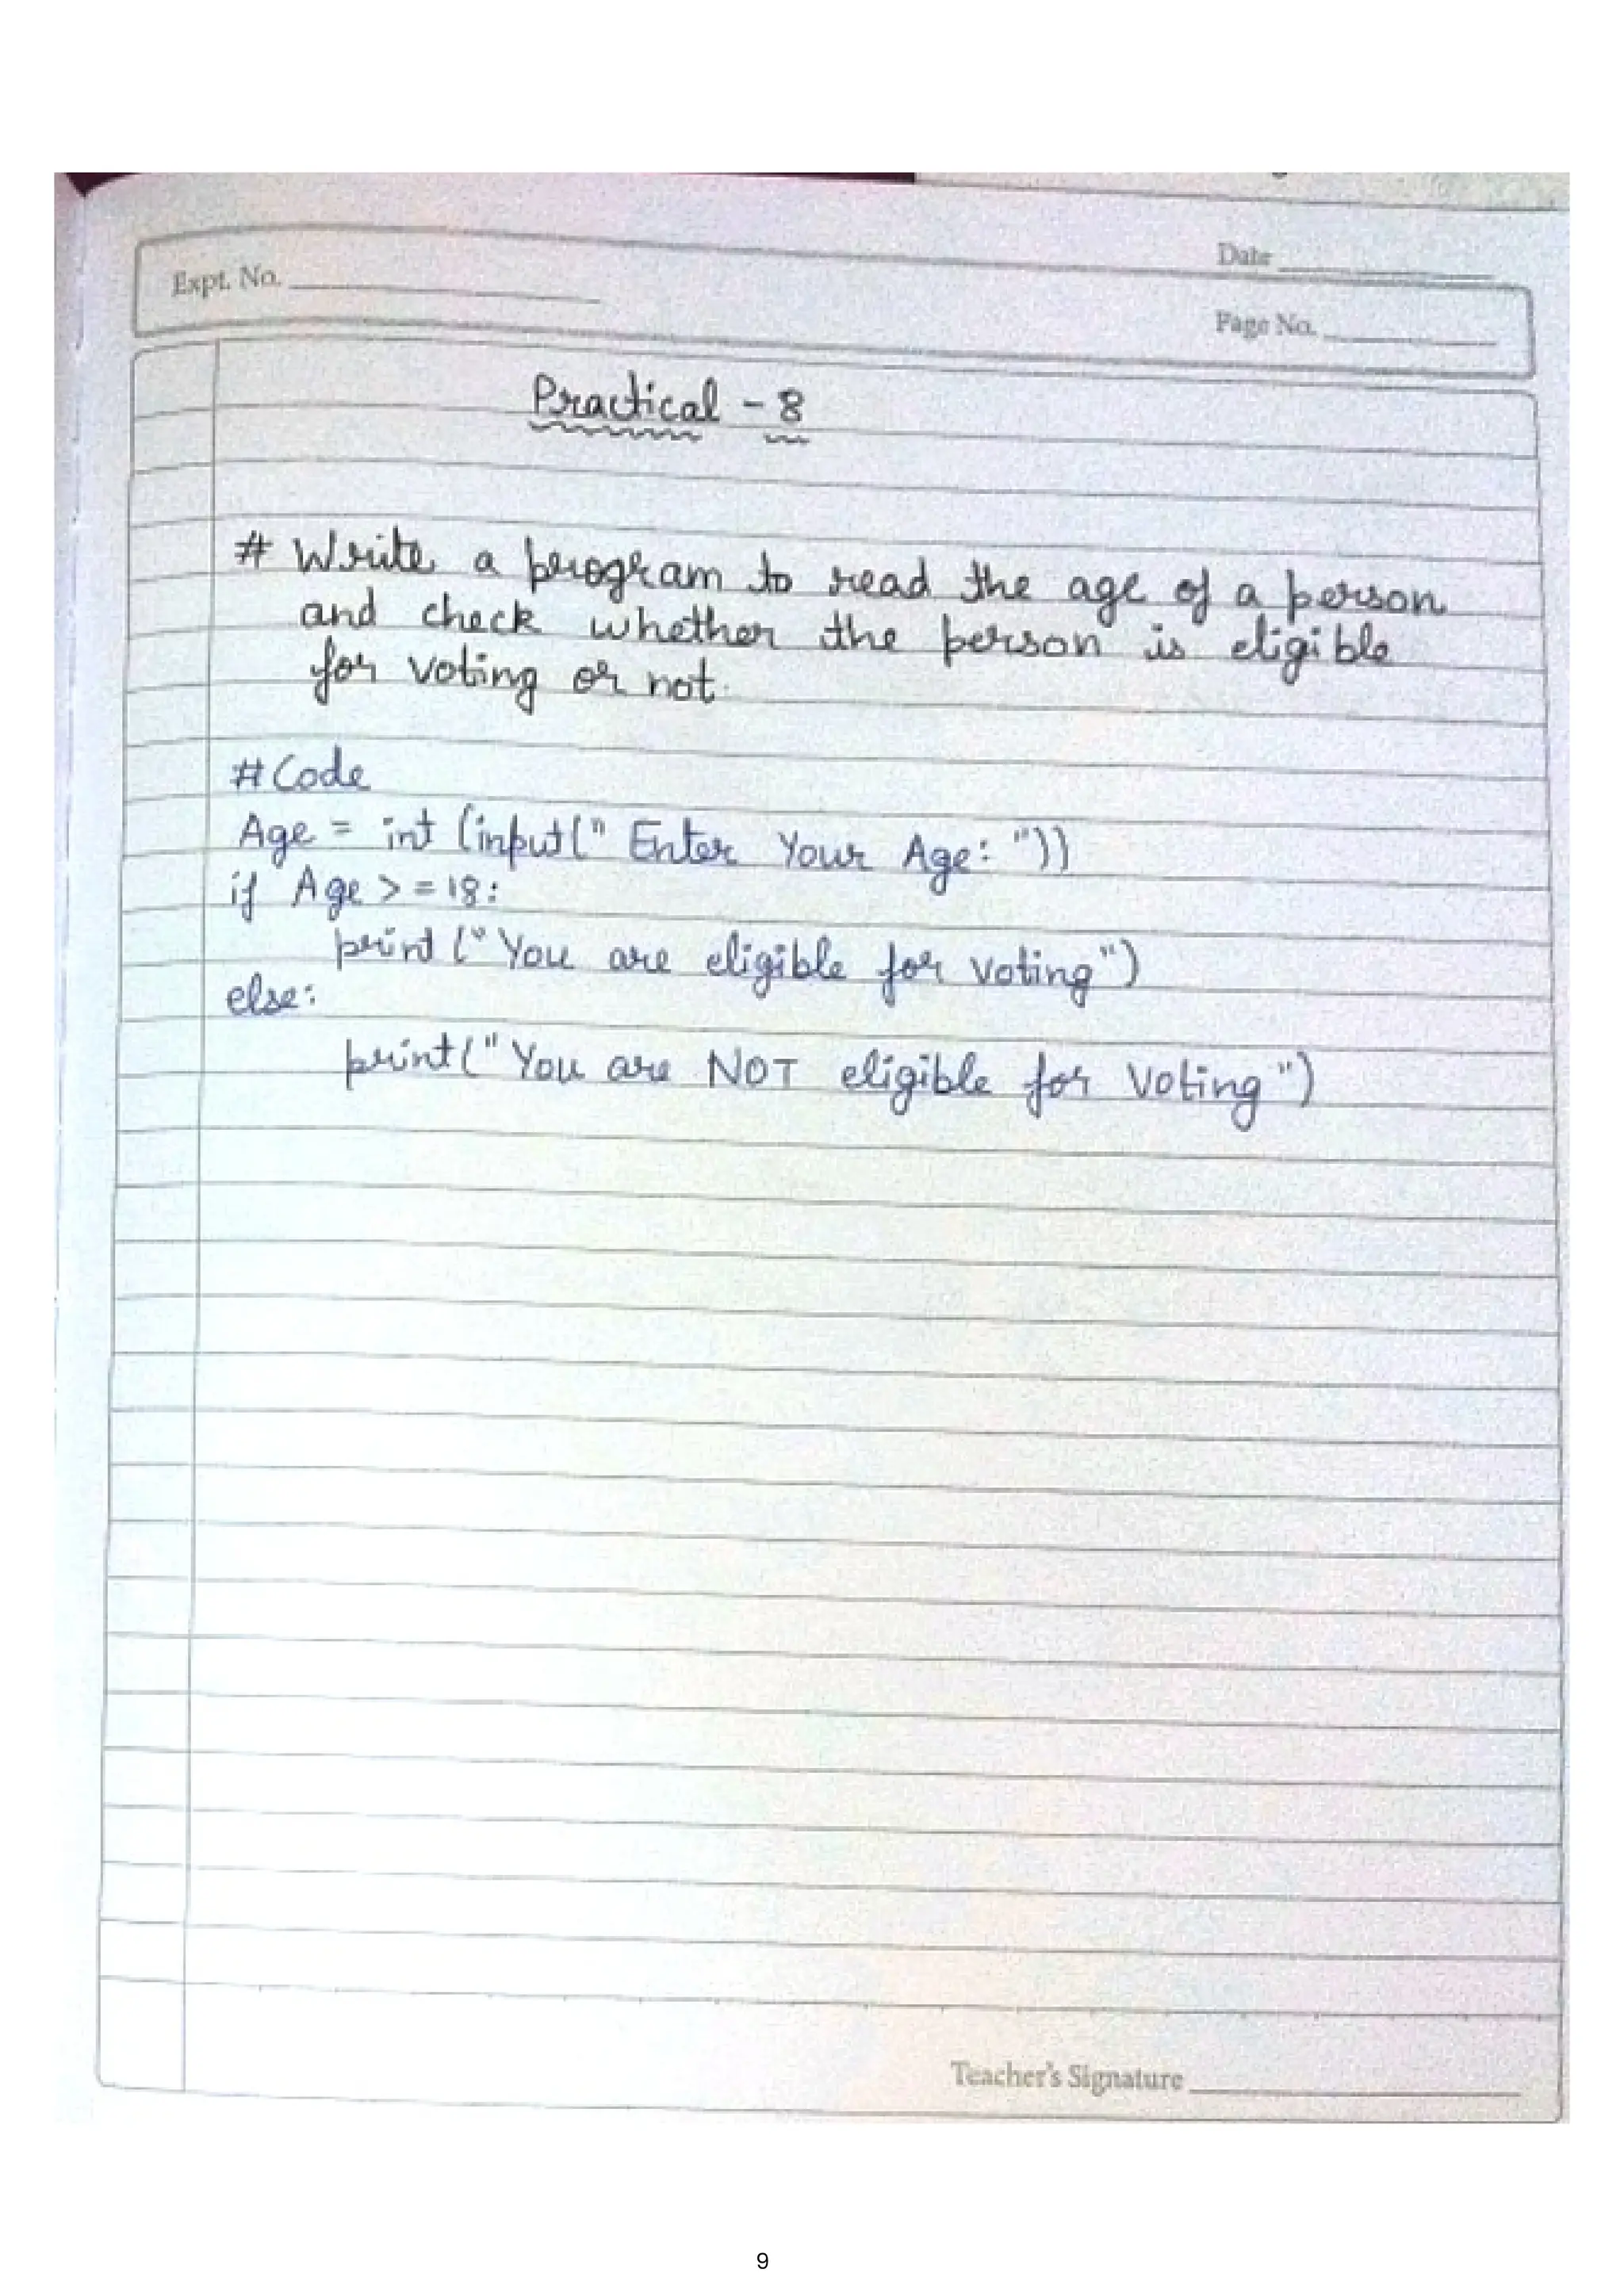 Expt. No.
Date
Page No.
Practical - 8
# Write a program to read the age of a person
and check whether the person is eligible
for voting or not.
# Code
Age = int (input(" Enter Your Age: "))
if Age >= 18:
print ("You are eligible for voting")
else:
print("You are NOT eligible for Voting")
Teacher's Signature
9